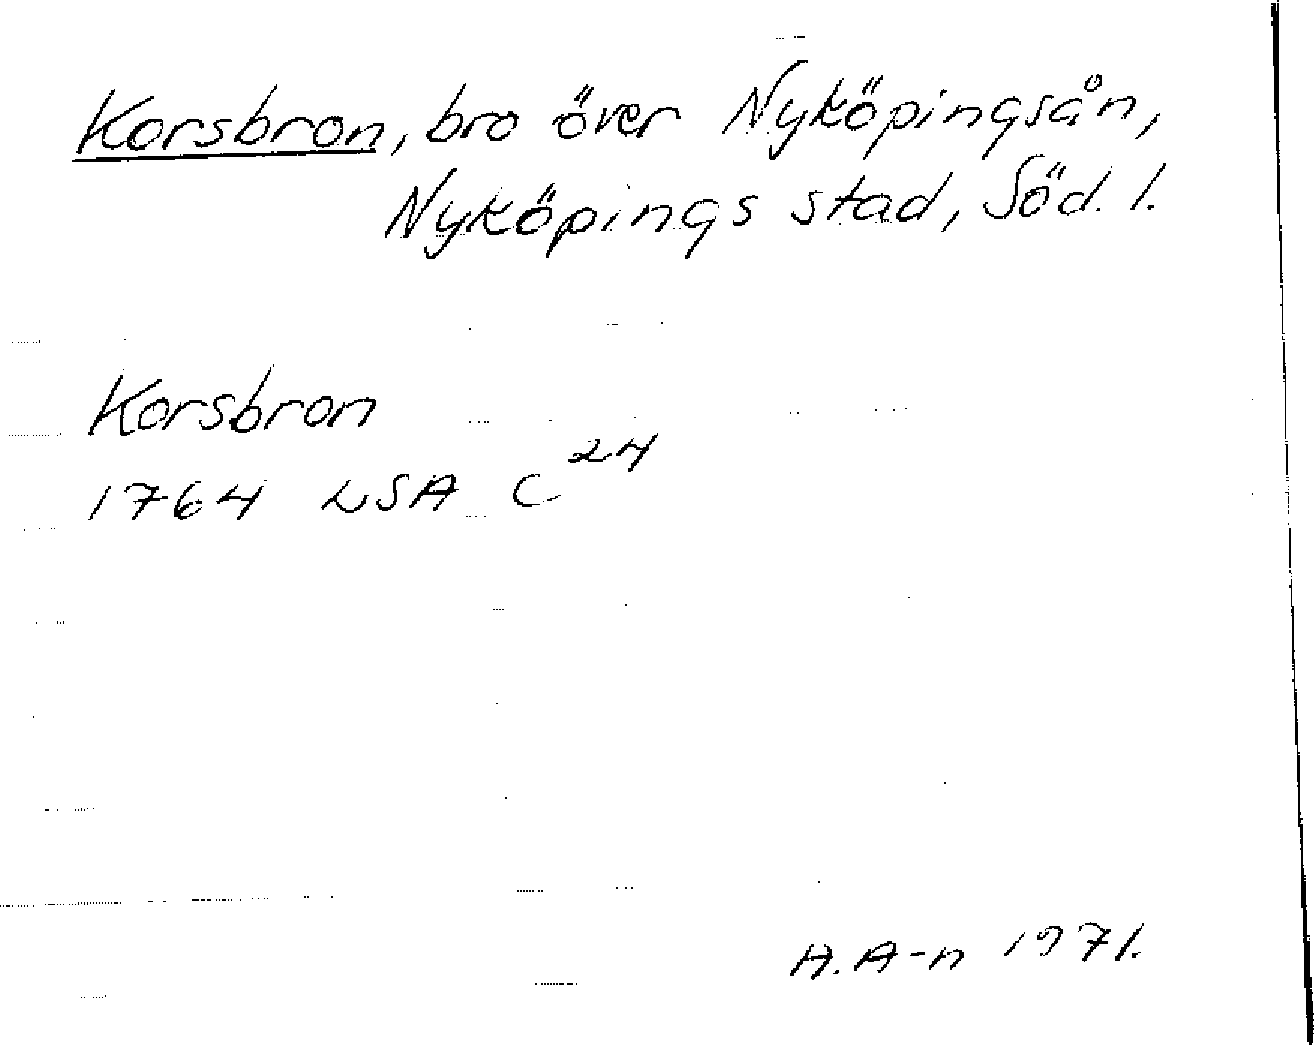 Korsbron, bro över Nyköpingsån,
Nyköpings stad, Söd. l.
Korsbron
1764 LSA C 24
A. A-n 1971.